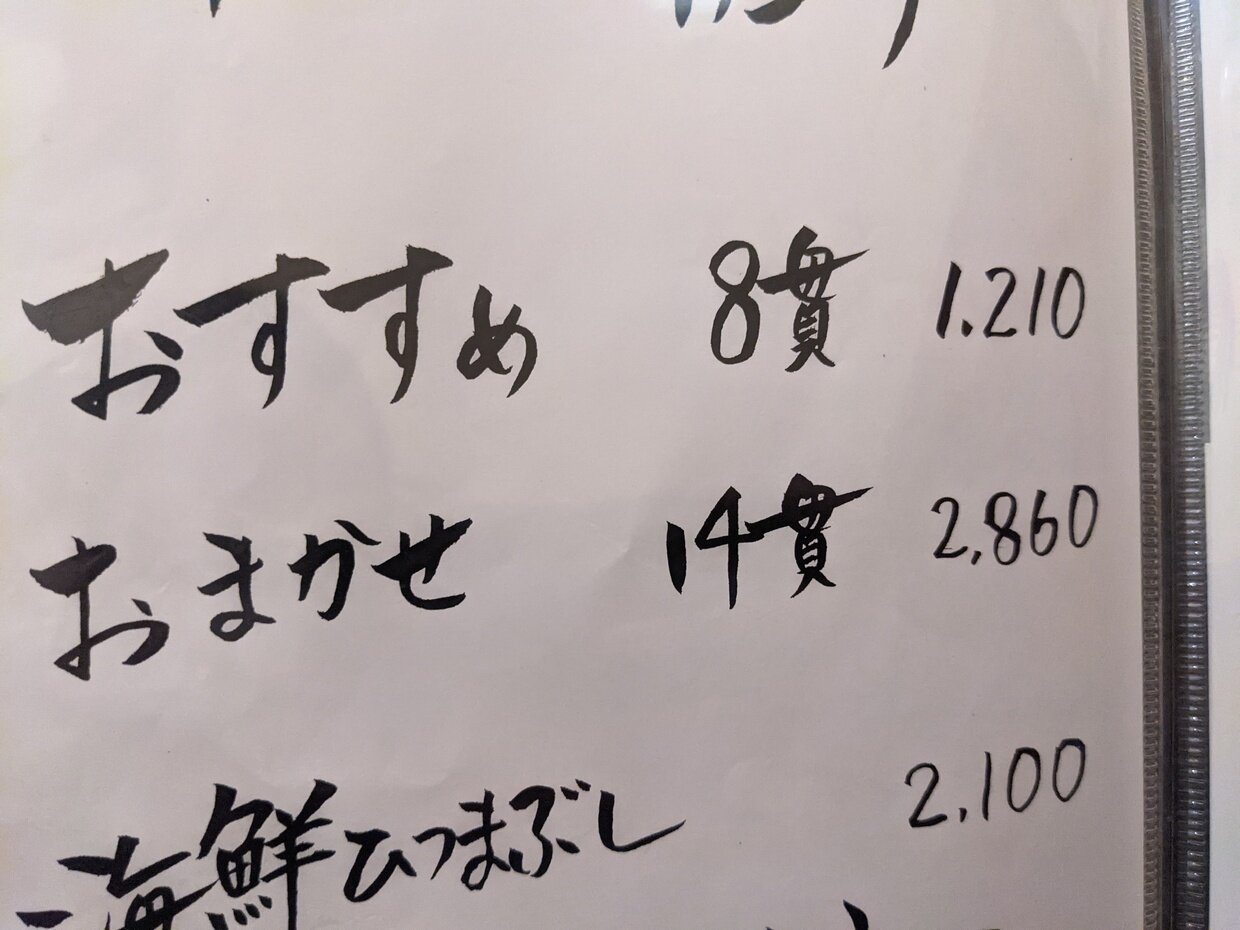 おすすめ 8貫 1.210
おまかせ 14貫 2,860
海鮮ひつまぶし 2,100